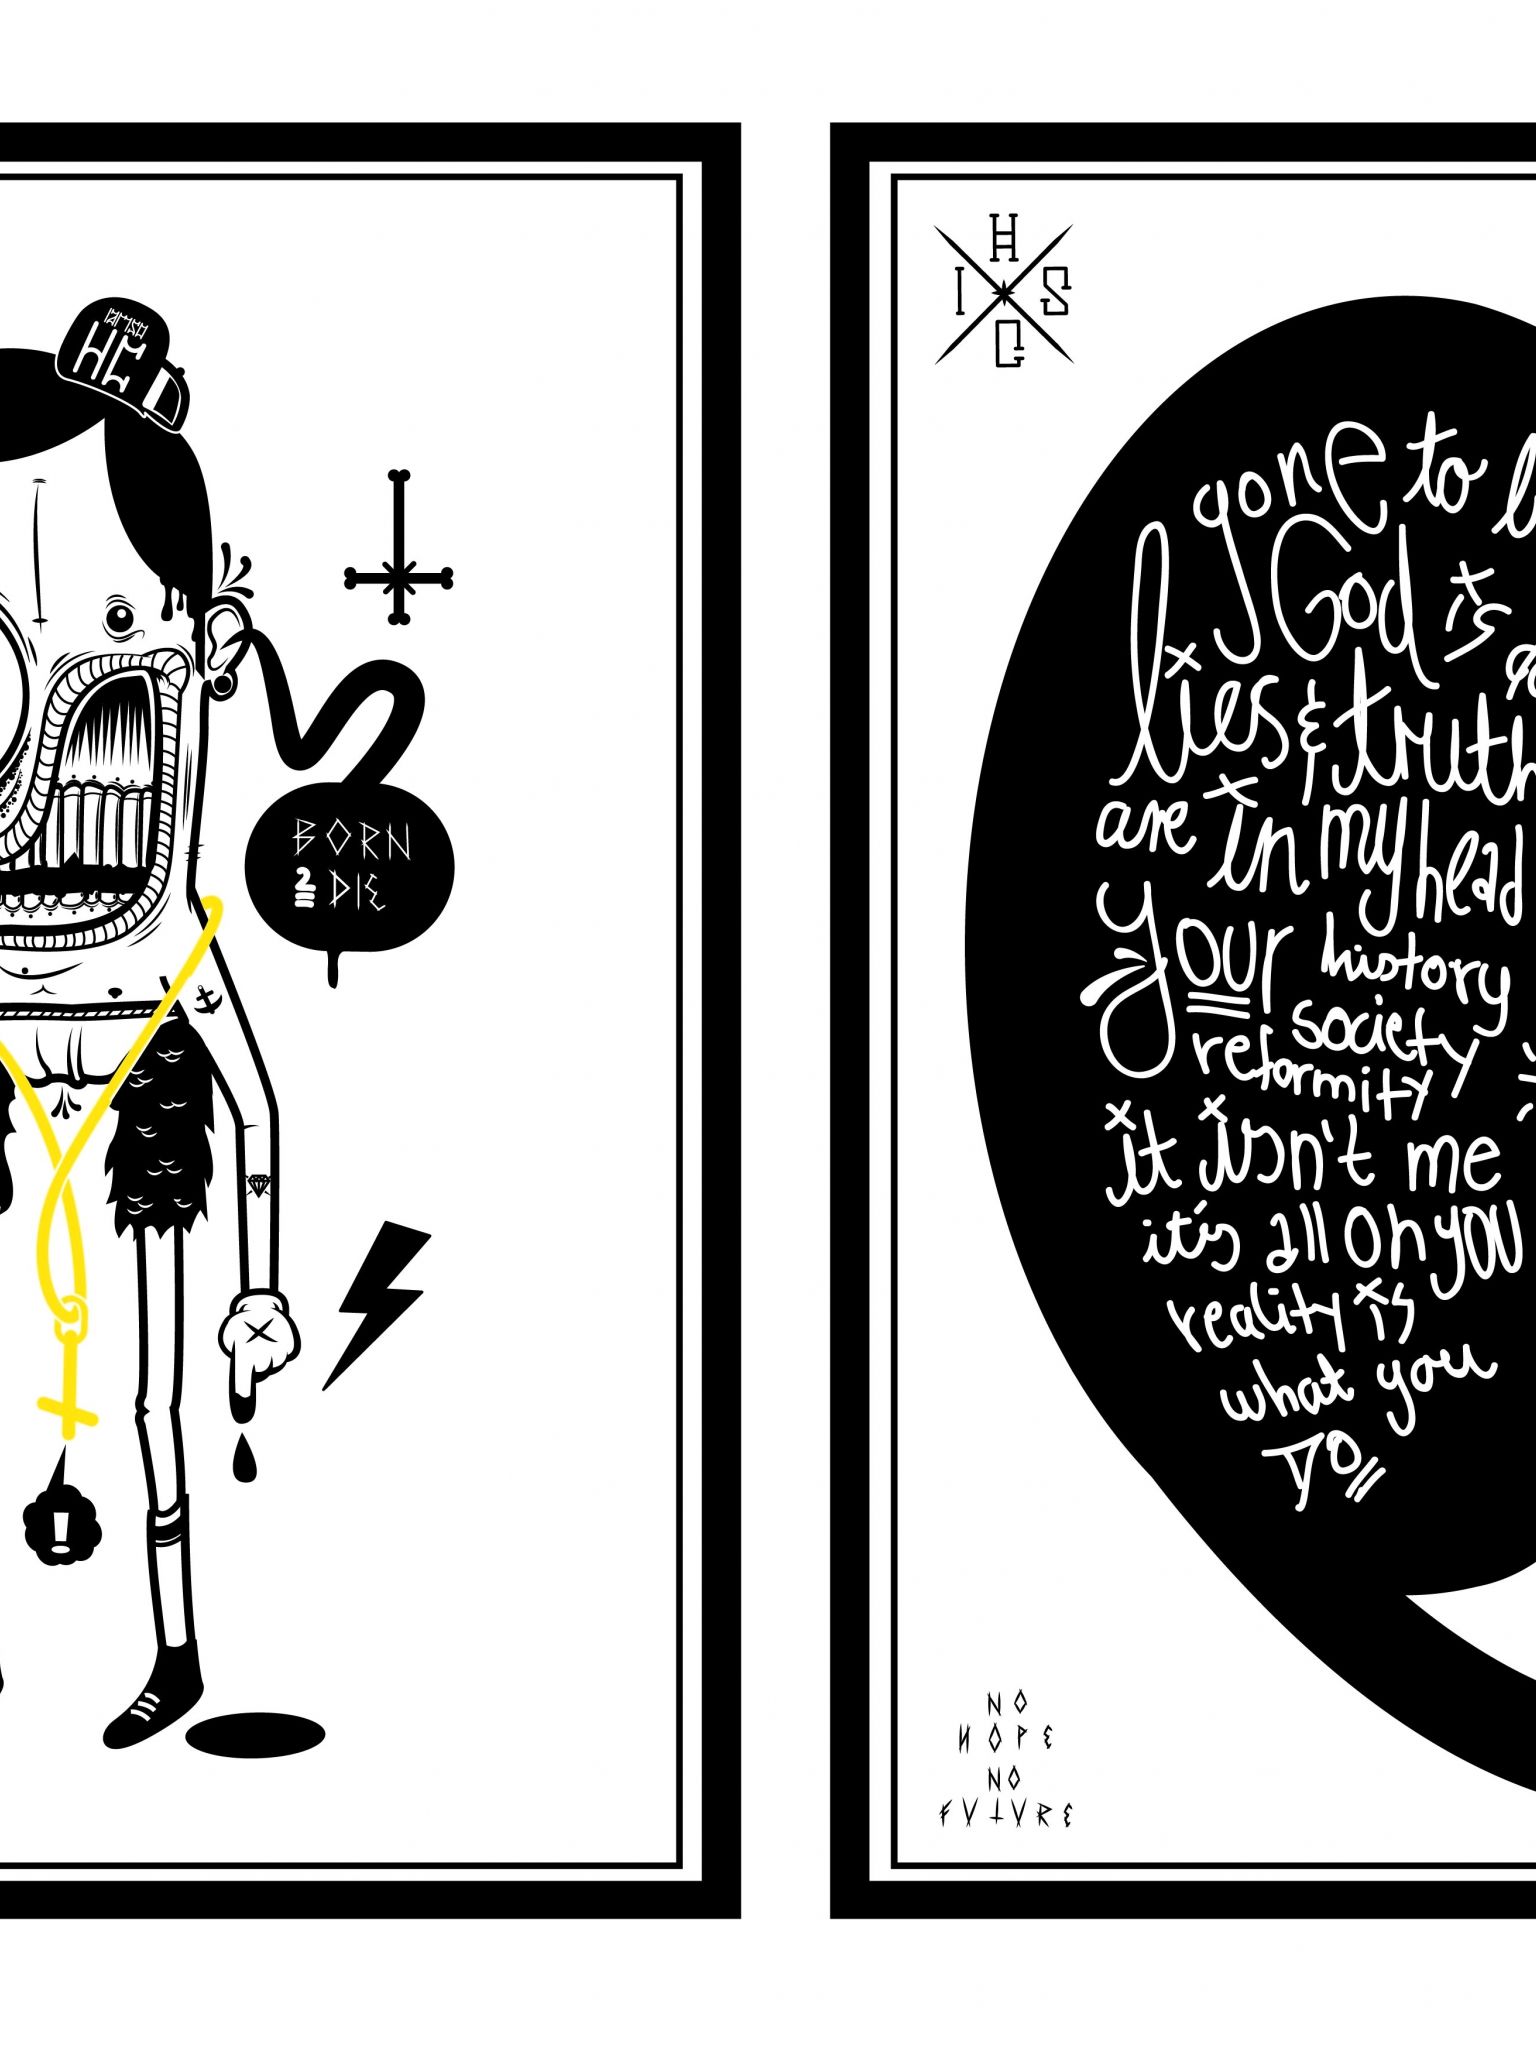 iamso
HC
BORN
2 DIE
!
H
I S
C
gone to
God is
lies & truth
are in my head
your history
society
reformity
it isn't me
it's all on you
reality is
what you
DO
NO
HOPE
NO
FUTURE